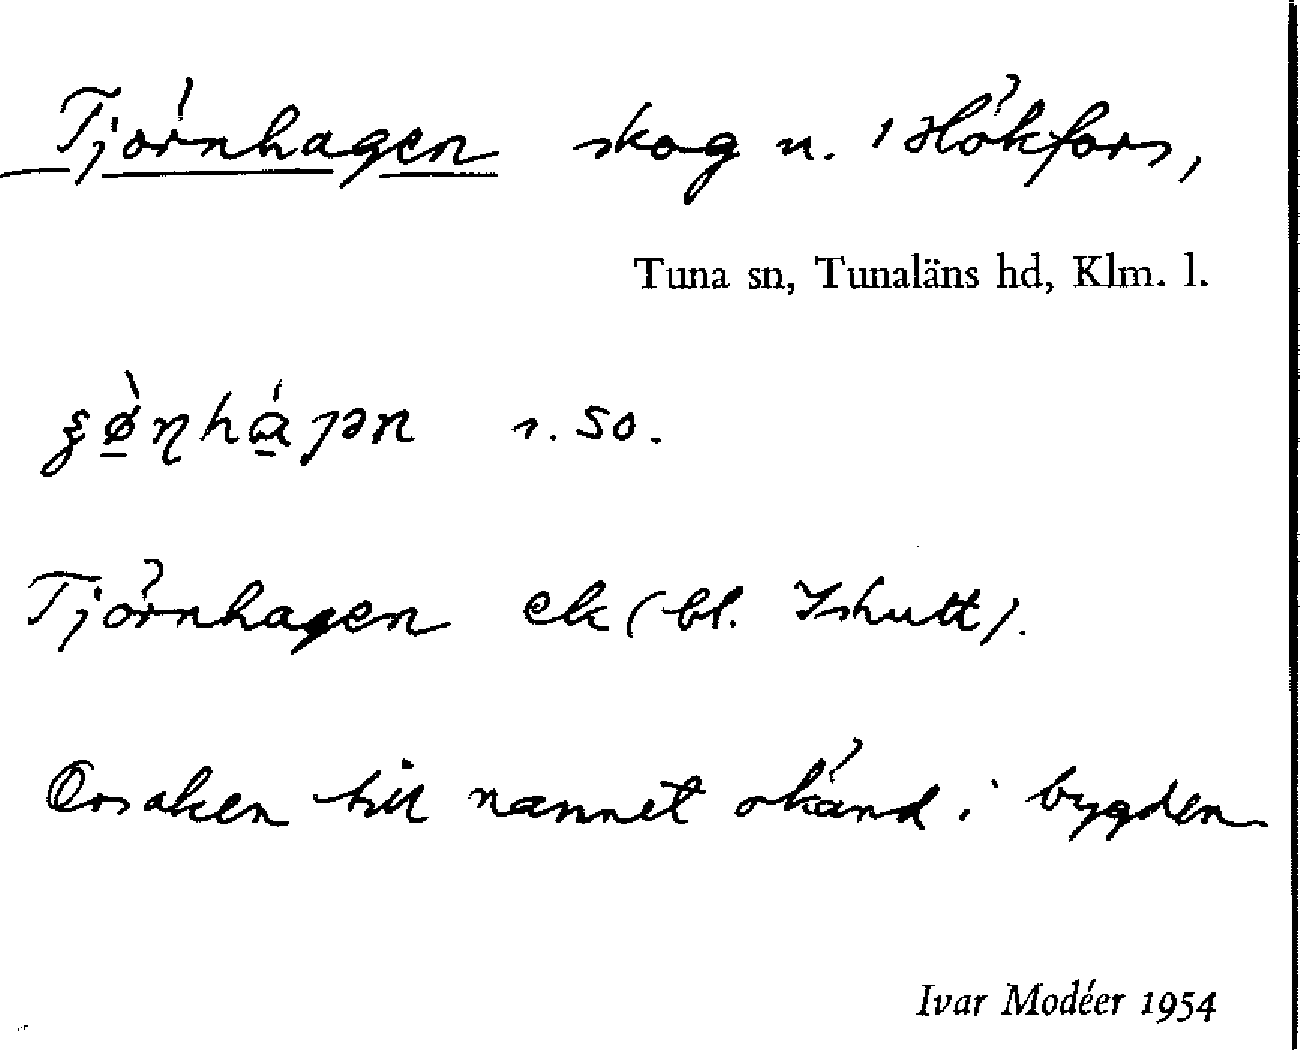 Tjörnhagen skog n. 1 Hökfors,
Tuna sn, Tunaläns hd, Klm. l.
s. so.
Tjörnhagen ek (bl. Ishult).
Orsaken till namnet okänd i bygden
Ivar Modéer 1954